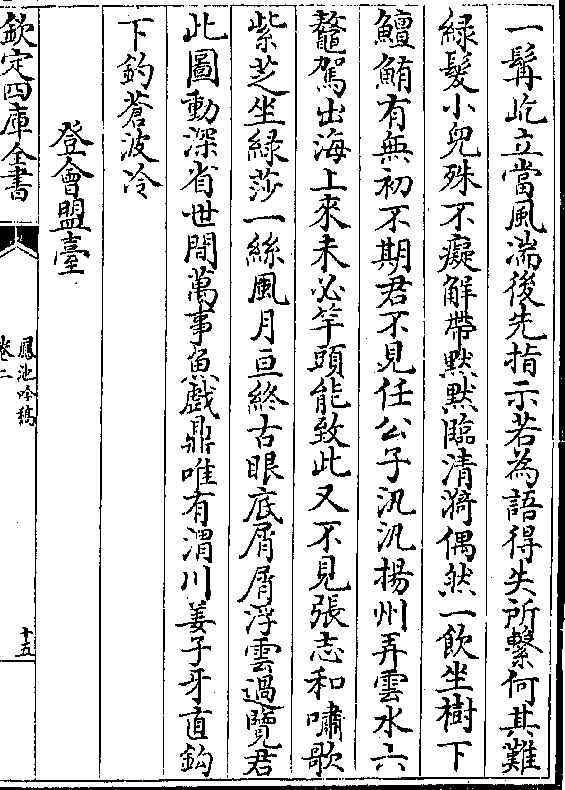 一髯屹立當風湍後先指示若為語得失所繫何其難
緑髪小兒殊不癡解帶默默臨清漪偶然一飲坐樹下
鱣鮪有無初不期君不見任公子汎汎揚州弄雲水六
鼇駕出海上來未必竿頭能致此又不見張志和嘯歌
紫芝坐緑莎一絲風月亘終古眼底屑屑浮雲過覽君
此圖動深省世間萬事魚戲鼎唯有渭川姜子牙直鈎
下釣蒼波冷
登會盟臺
欽定四庫全書
鳳池吟稿
卷二
十五